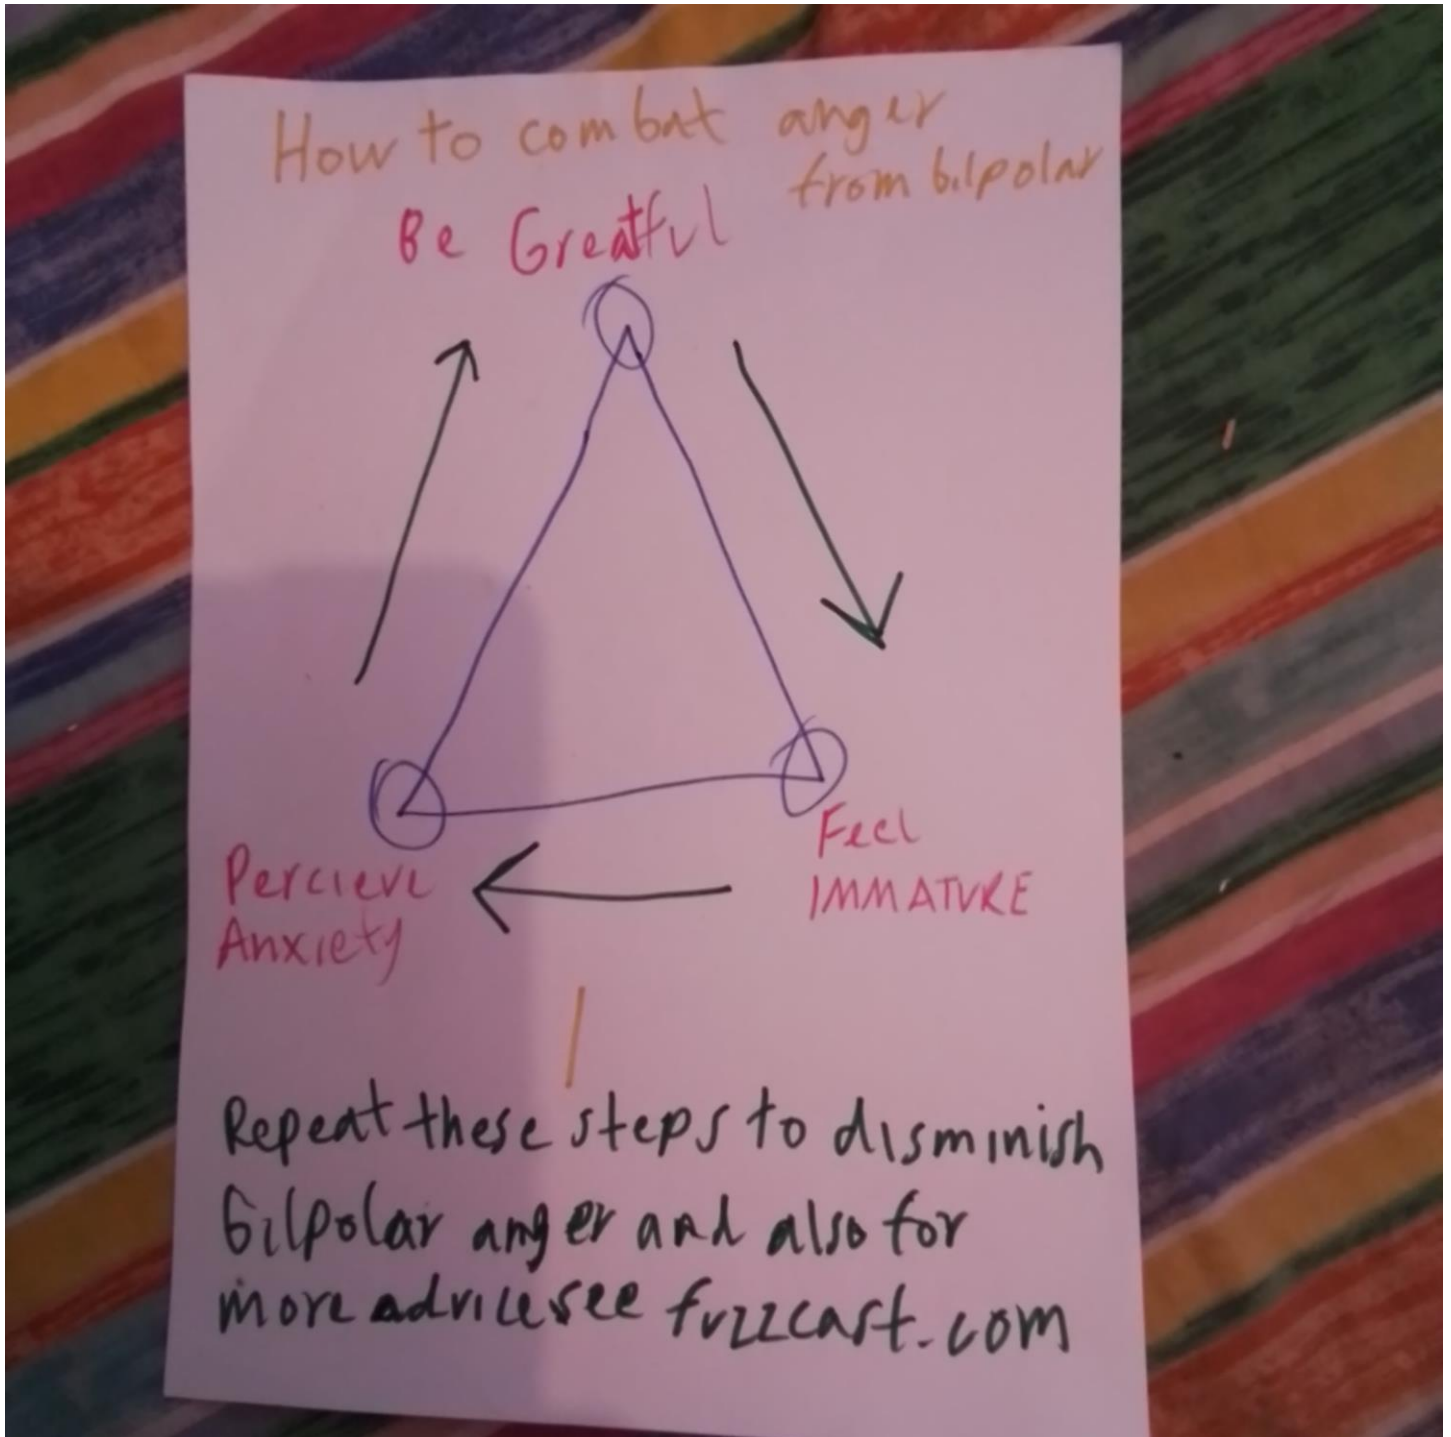 How to combat anger
from bilpolar
Be Greatful
Feel
IMMATURE
Percieve
Anxiety
Repeat these steps to disminish
bilpolar anger and also for
more advice see fuzzcast.com